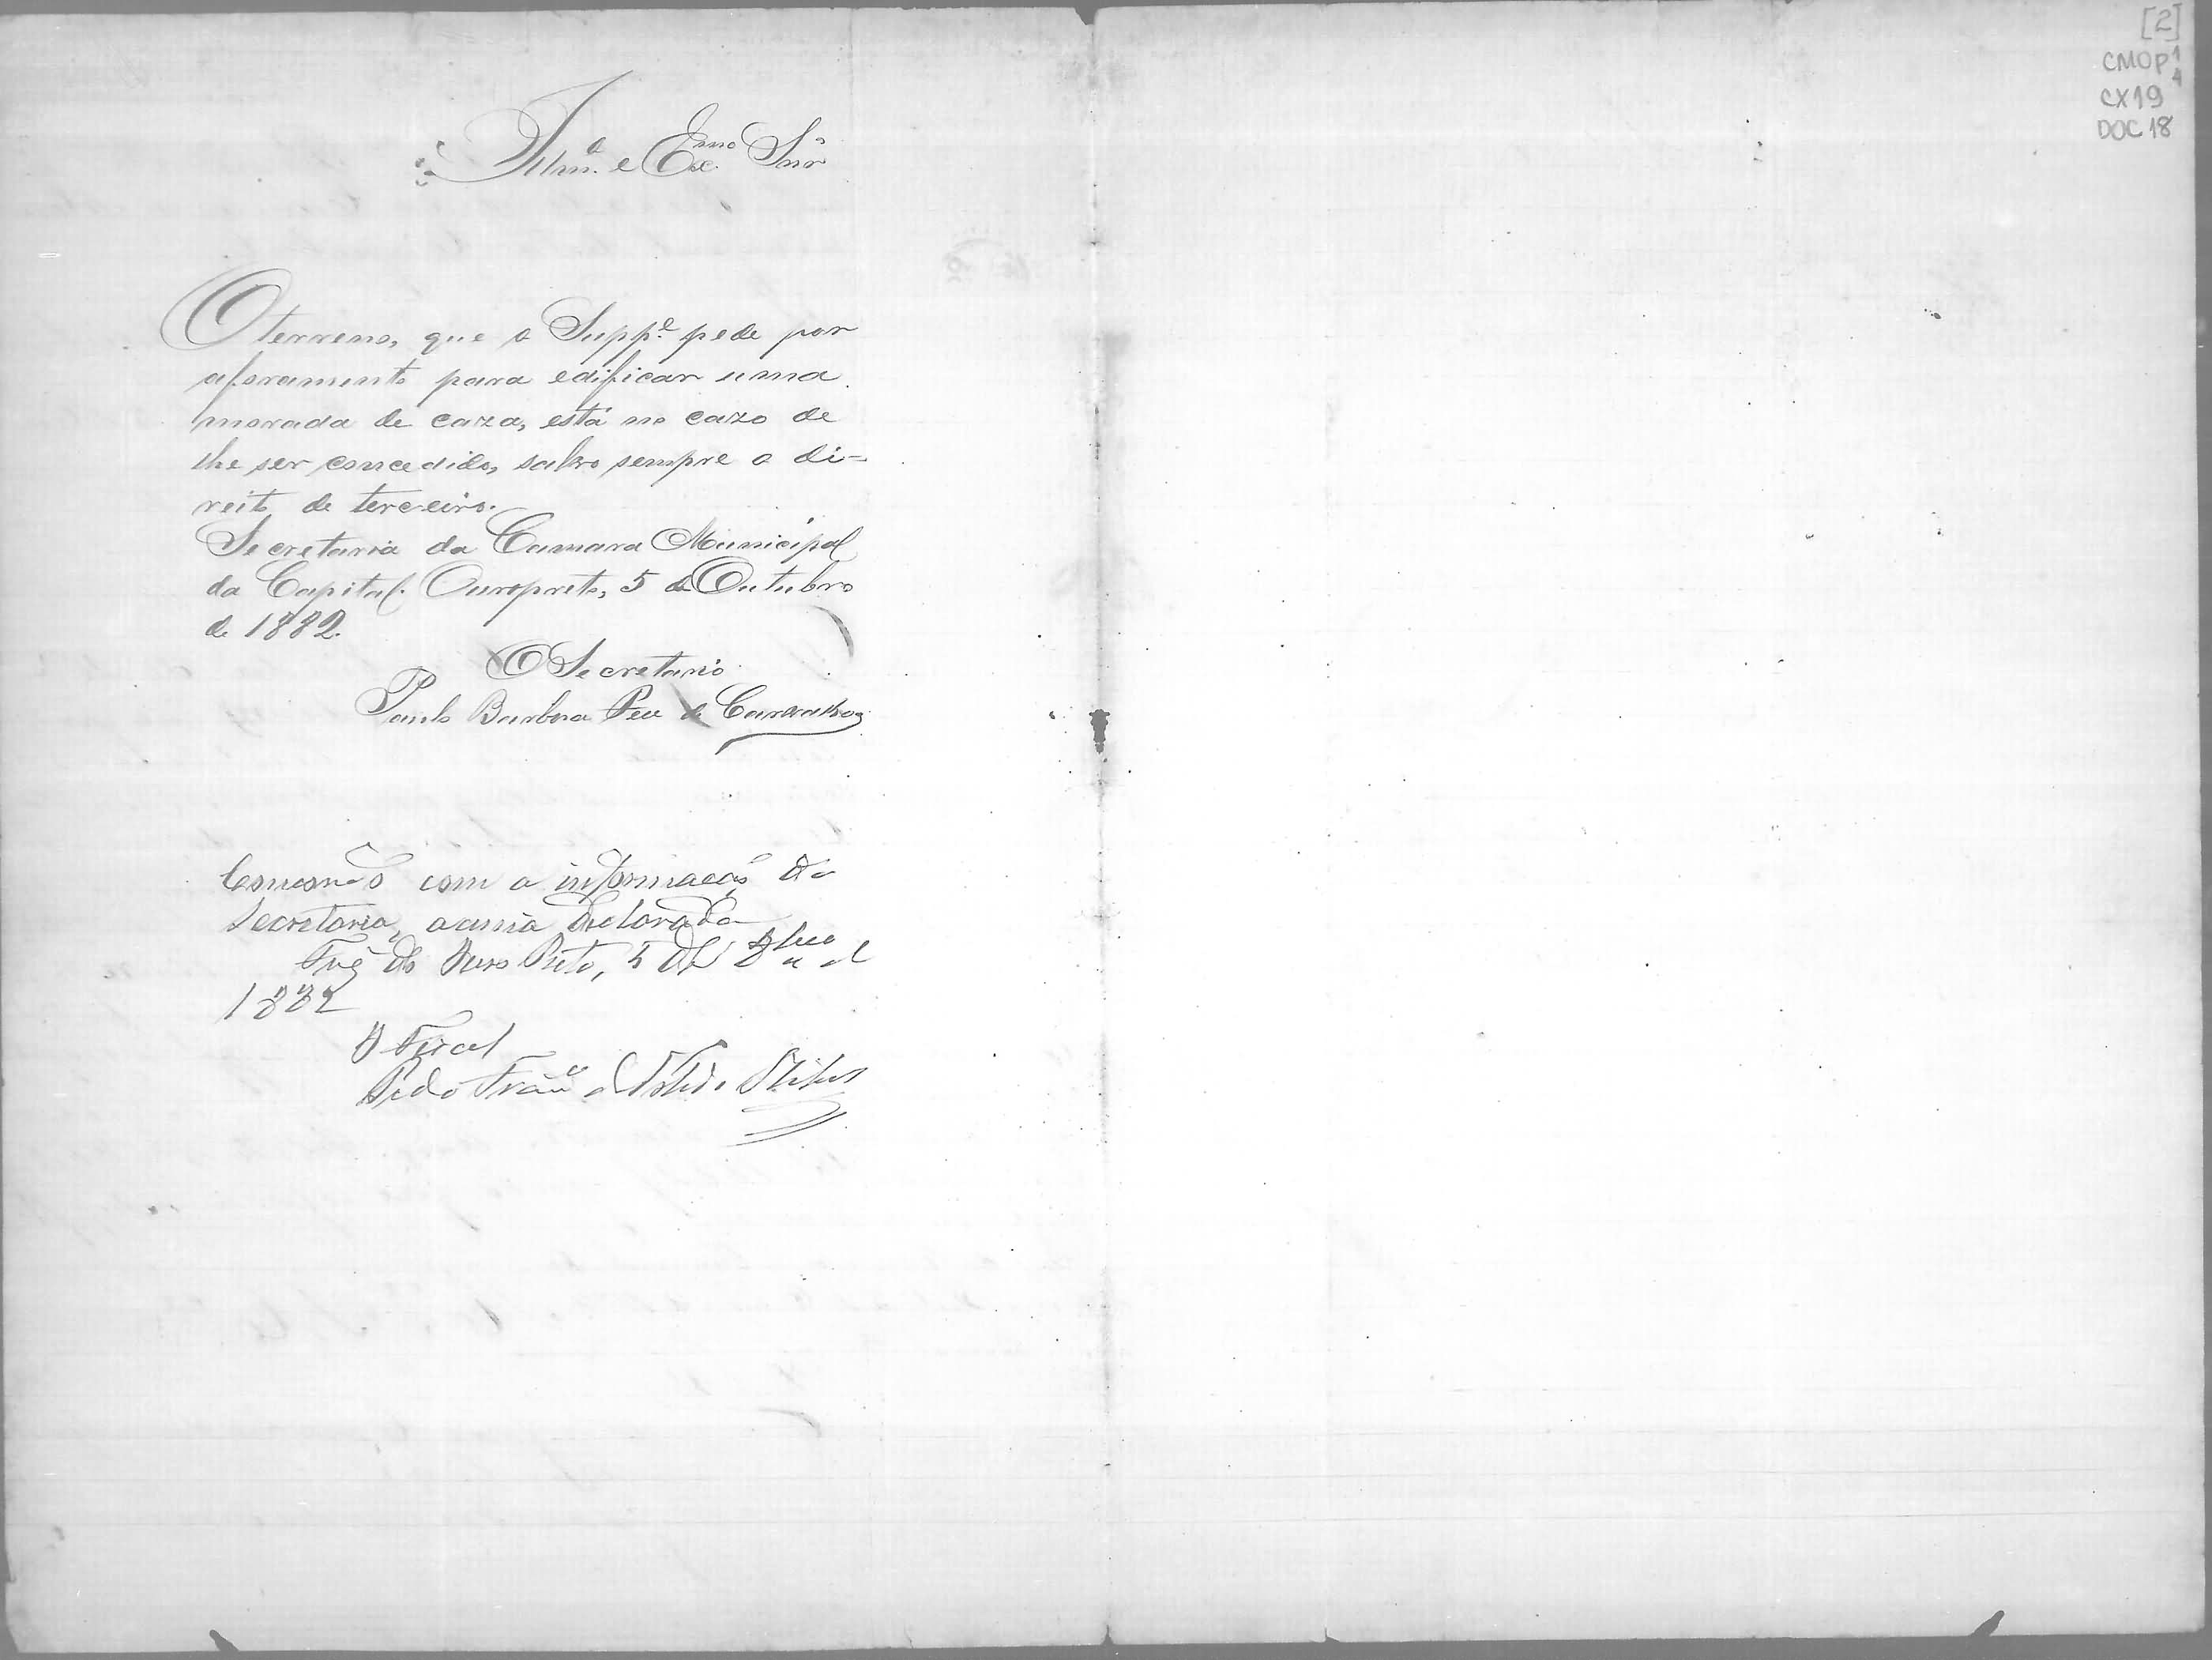 Illmº. e Exmo. Snr
O terreno, que o Suppe. pede por
aforamento para edificar uma
morada de caza, está no cazo de
lhe ser concedido, salvo sempre o di=
reito de terceiro.
Secretaria da Camara Municipal
da Capital. Ouropreto, 5 de Outubro
de 1882.
O Secretario
Paulo Barbosa de Carvalho
Concordo com a informação da
Secretaria, acima declarada
do Ouro Preto, 5 de 8bro de
1882
O Fiscal
Pedo Franco de
[2]
CMOP 1
4
CX19
DOC 18